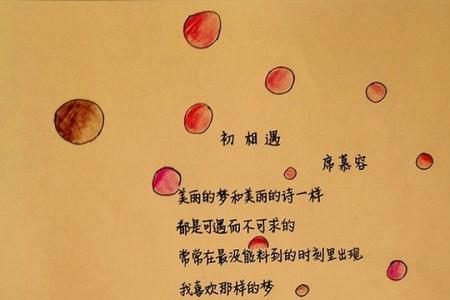 初相遇
席慕容
美丽的梦和美丽的诗一样
都是可遇而不可求的
常常在最没能料到的时刻里出现
我喜欢那样的梦